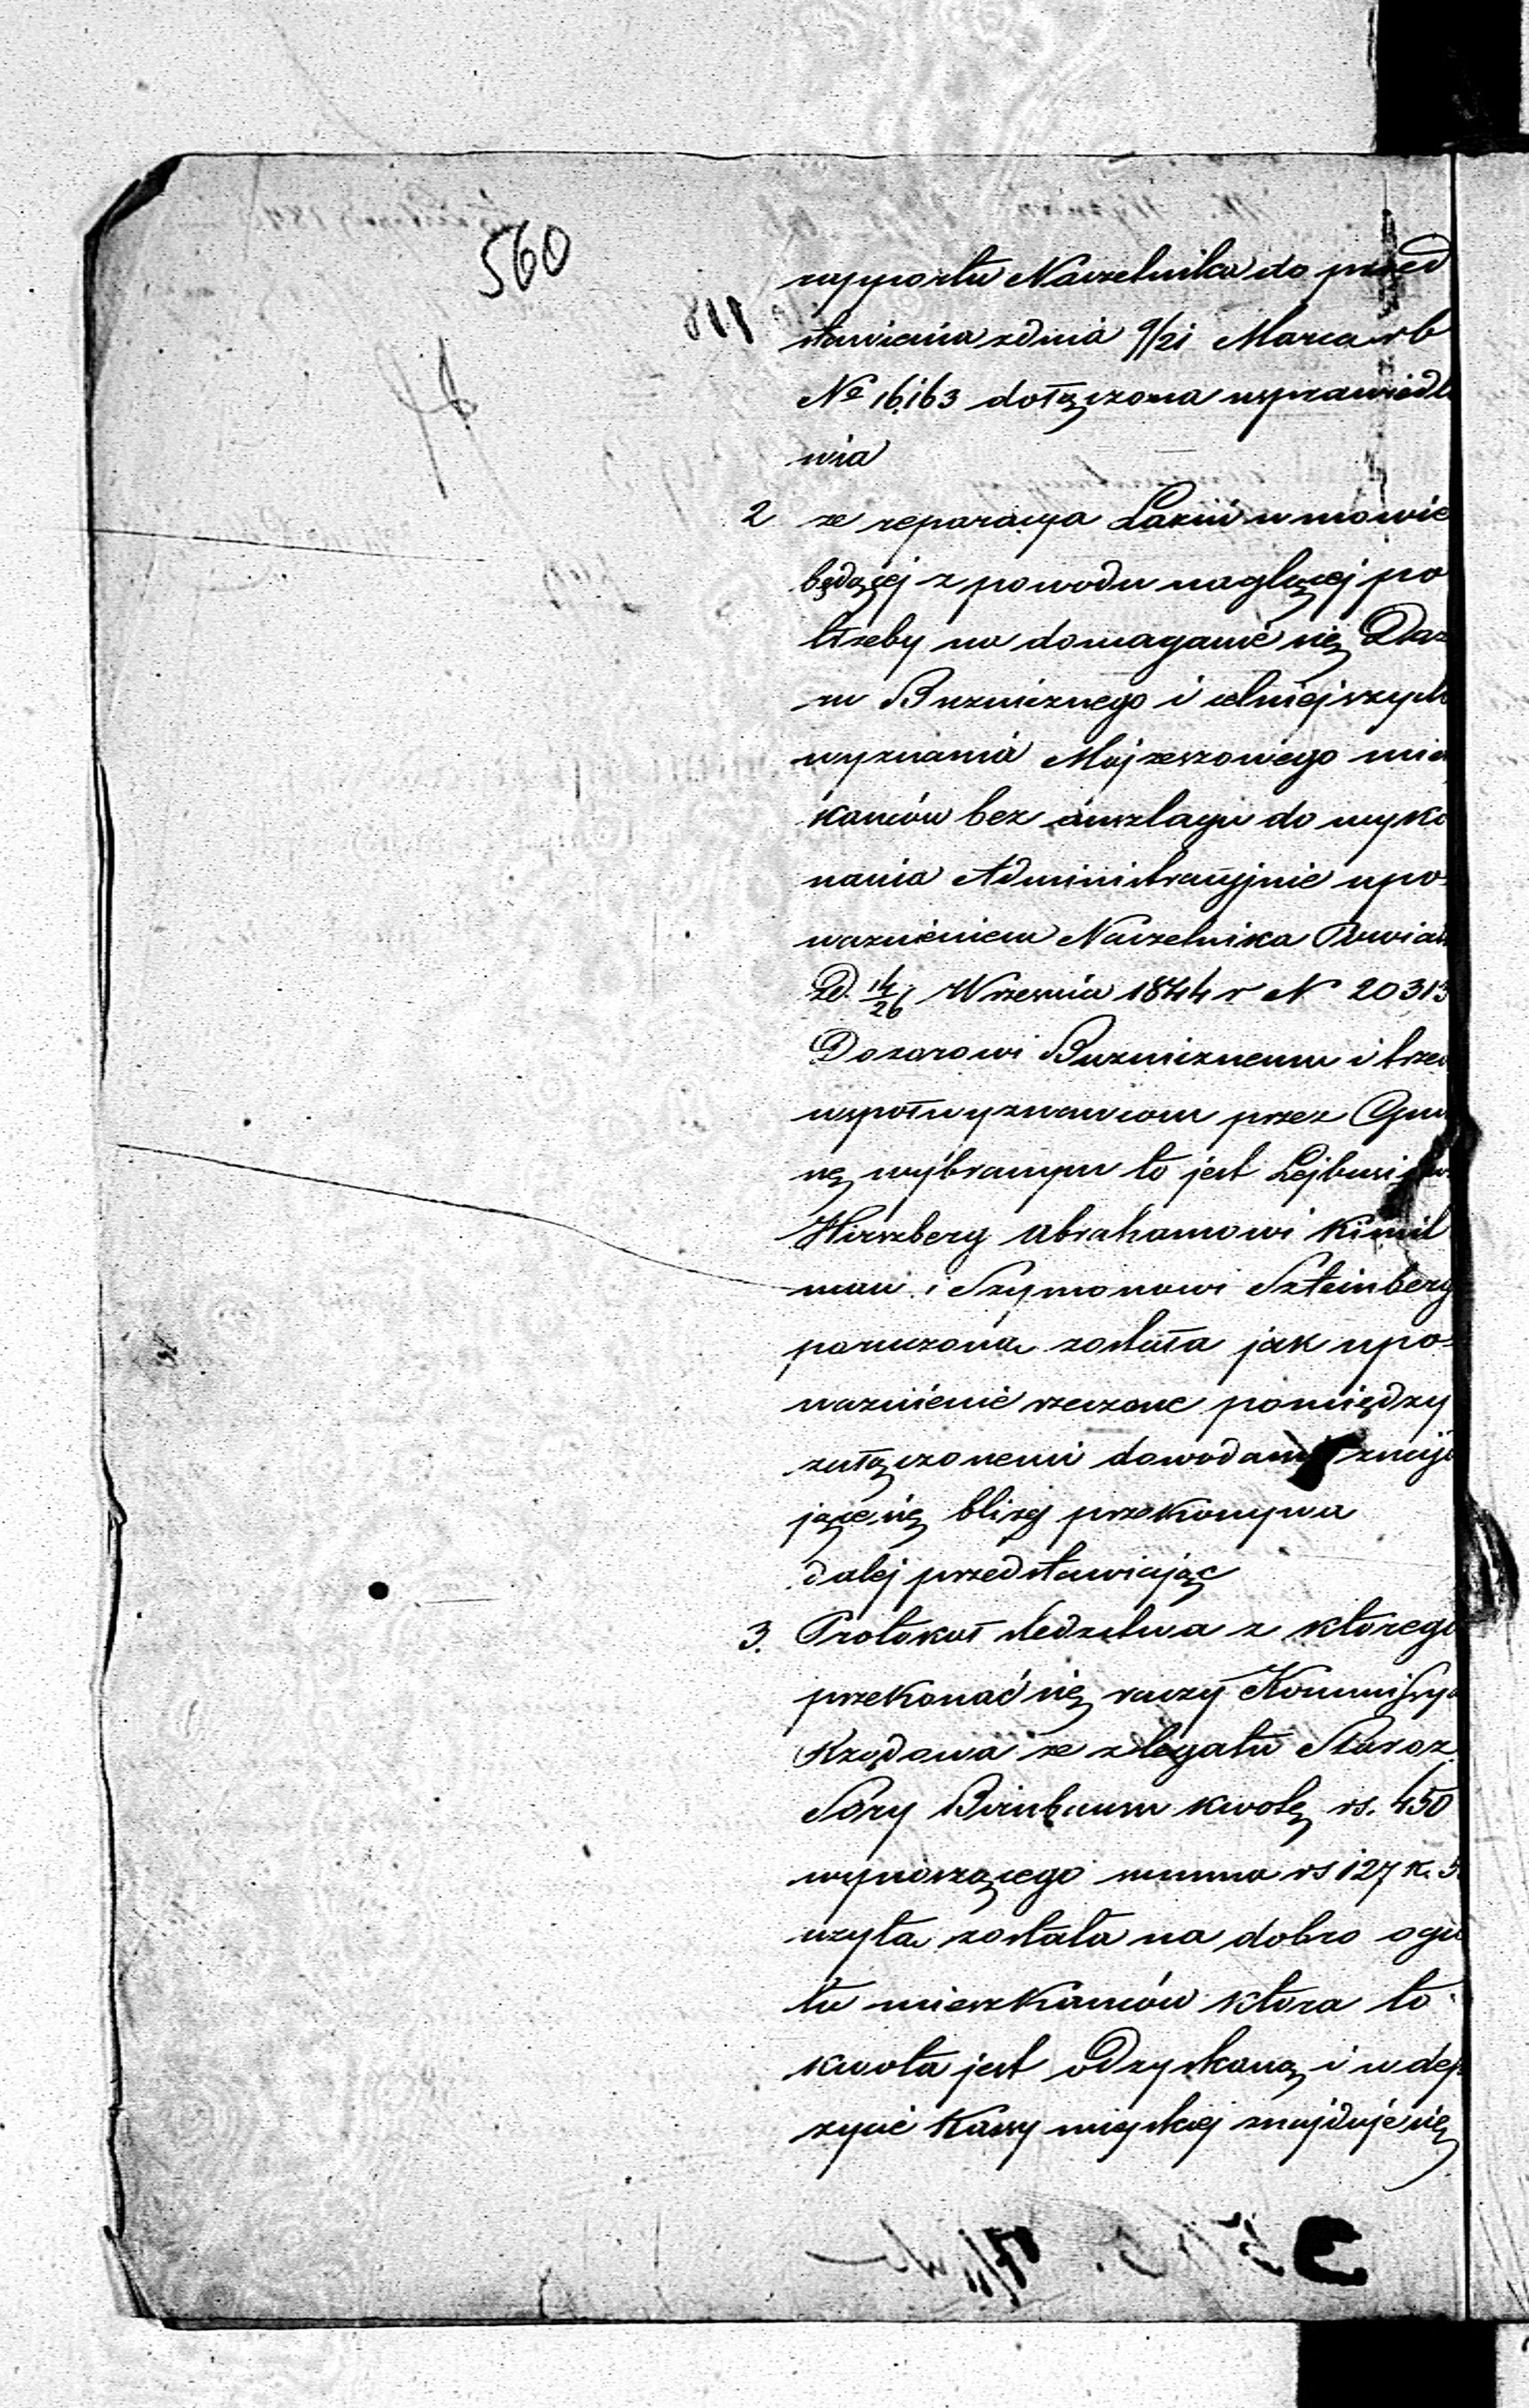 560
rapportu Naczelnika do przed
stawienia z dnia 9/21 Marca rb
No 16,163 dołączona usprawiedli
wia
2 że reparacya Łazni w mowie
będącej z powodu naglącej po
trzeby na domaganie się Dozo
ru Buznicznego i celniejszych
wyznania Mojżeszowego miesz
kańców bez anszlagu do wyko
nania Administracyjnie upo-
ważnieniem Naczelnika Powiatu
Zd. 14/26 Wrzesnia 1844 r N 20313
Dozorowi Buzniczнemu i trzem
wspołwyznawcom przez Gmi
nę wybranym to jest Lejbusiowi
Hirszberg Abrahamowi Kimil
man i Szymonowi Szteinberg
poruczona została jak upo-
waznienie rzeczone pomiędzy
załączonemi dowodami znajdu
jące się bliżej przekonywa
dalej przedstawiając
3. Protokuł sledztwa z którego
przekonać się raczy Kommissya
Rządowa że z legatu Staroz.
Sory Birnbaum kwotę rs. 450
wynoszącego summa rs 127 k. 5
uzyta została na dobro ogu
łu mieszkańców ktora to
kwota jest odzyskaną i w depo
zycie Kassy miejskiej znajduje się